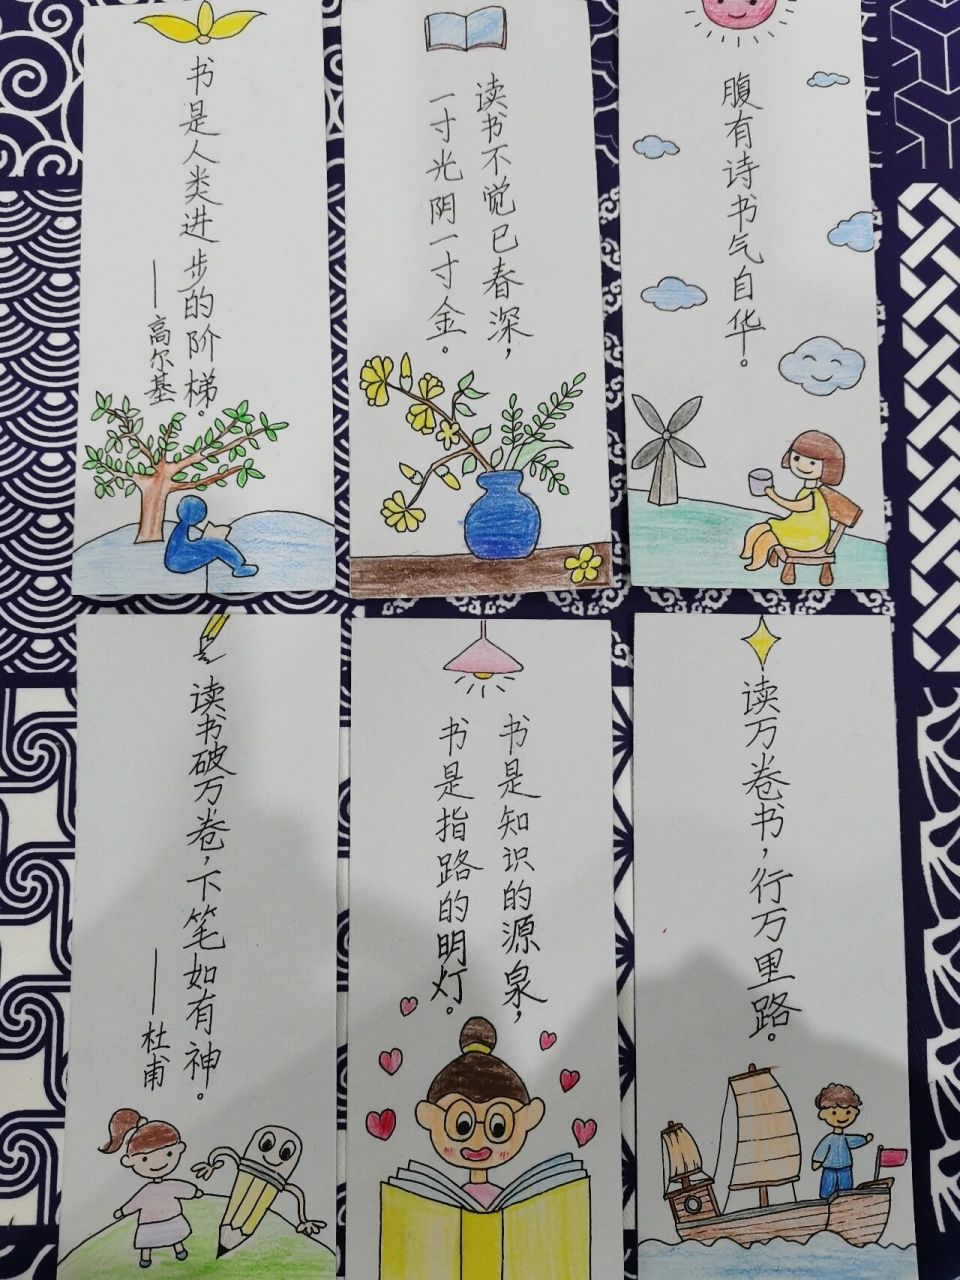 书是人类进步的阶梯。
——高尔基
读书不觉已春深，
一寸光阴一寸金。
腹有诗书气自华。
读书破万卷，下笔如有神。
——杜甫
书是知识的源泉，
书是指路的明灯。
读万卷书，行万里路。